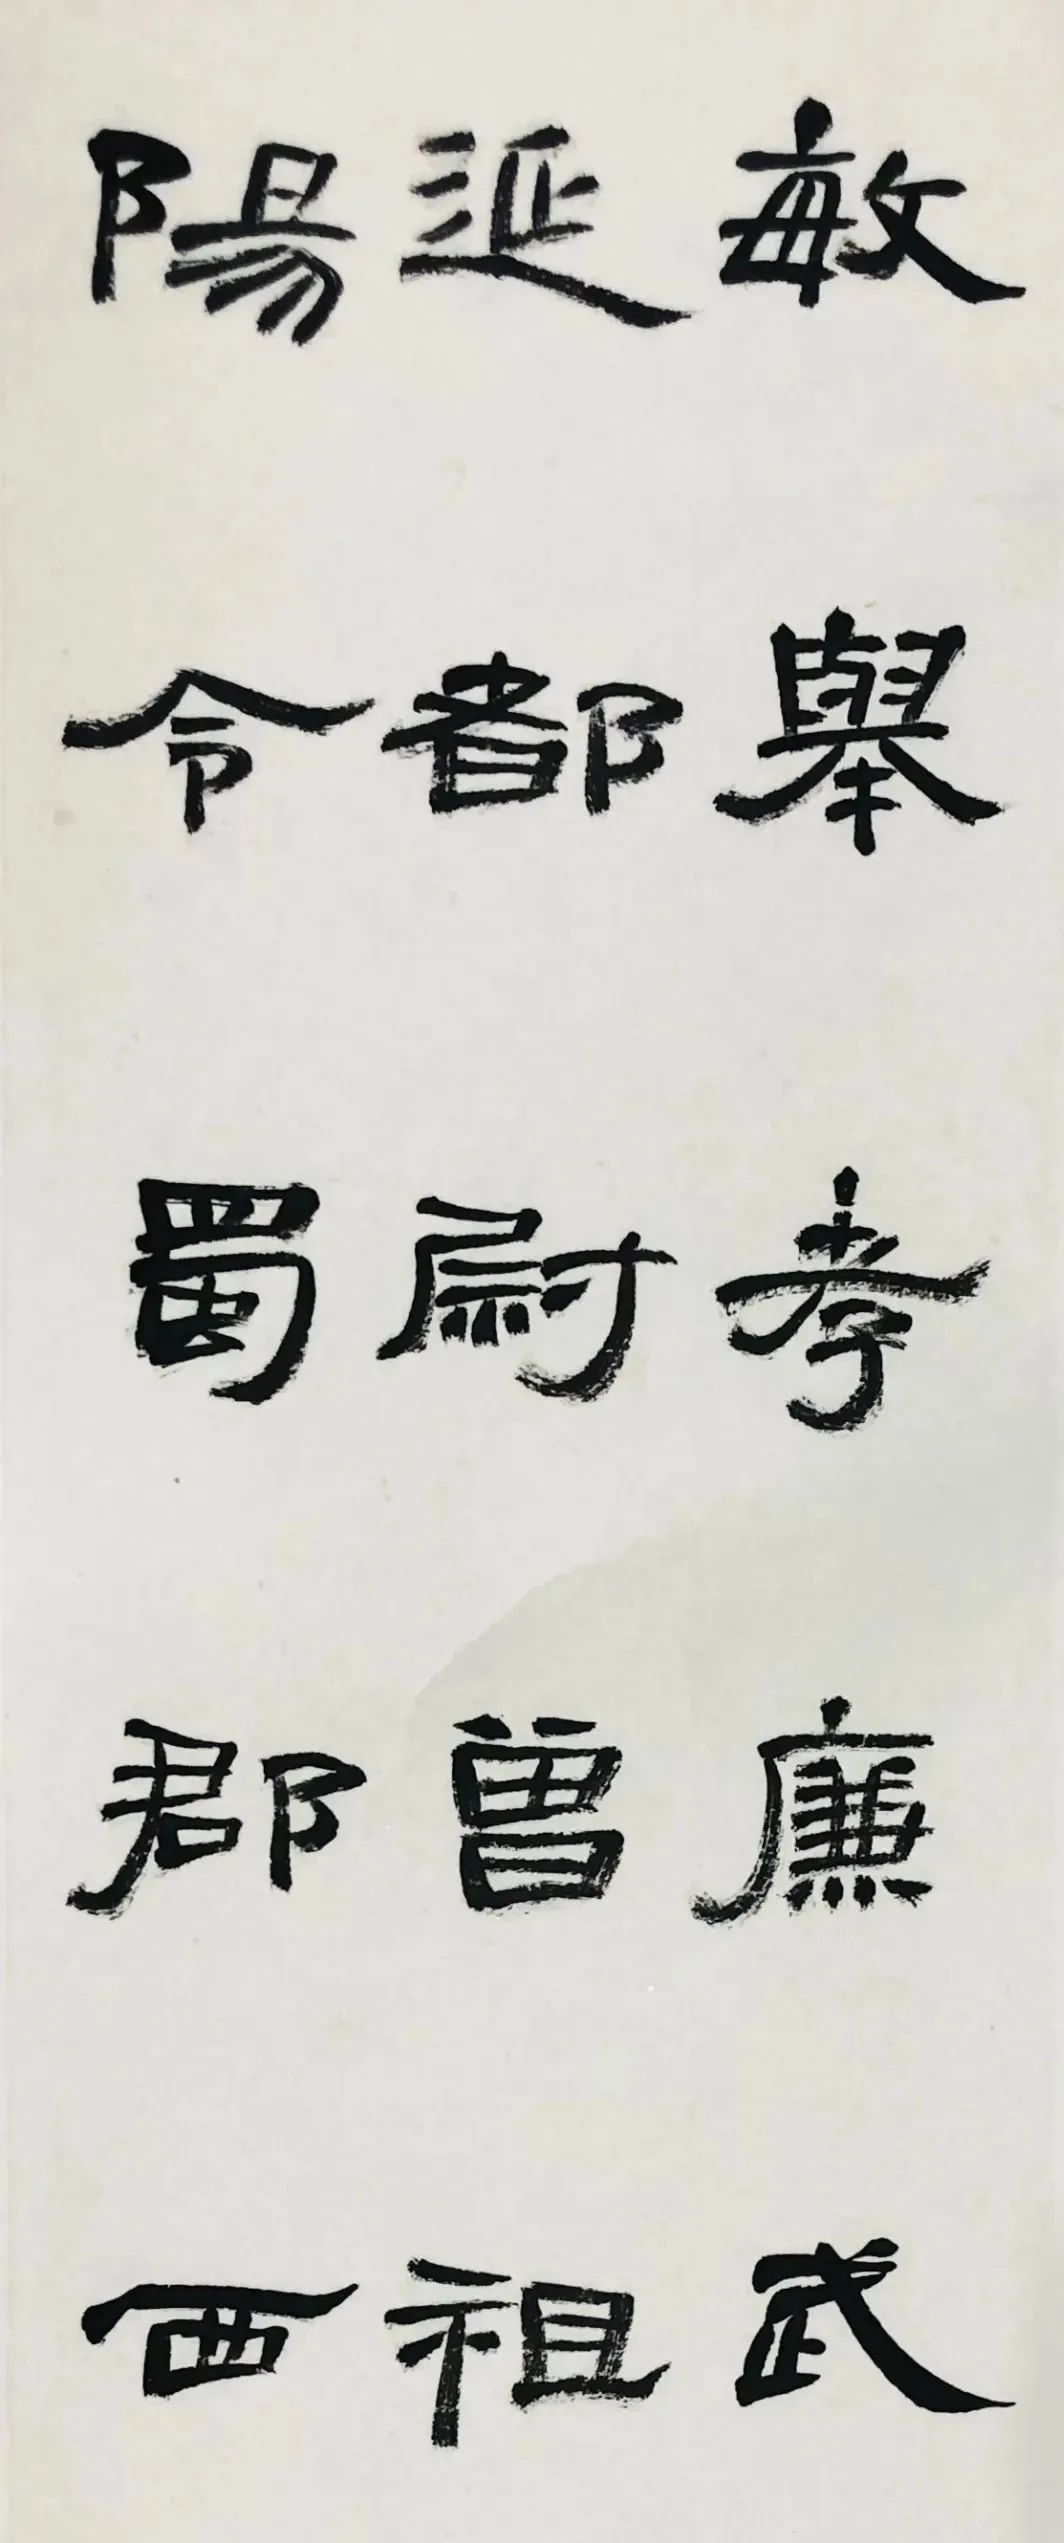 敏舉孝廉武
延都尉曾祖
陽令蜀郡西